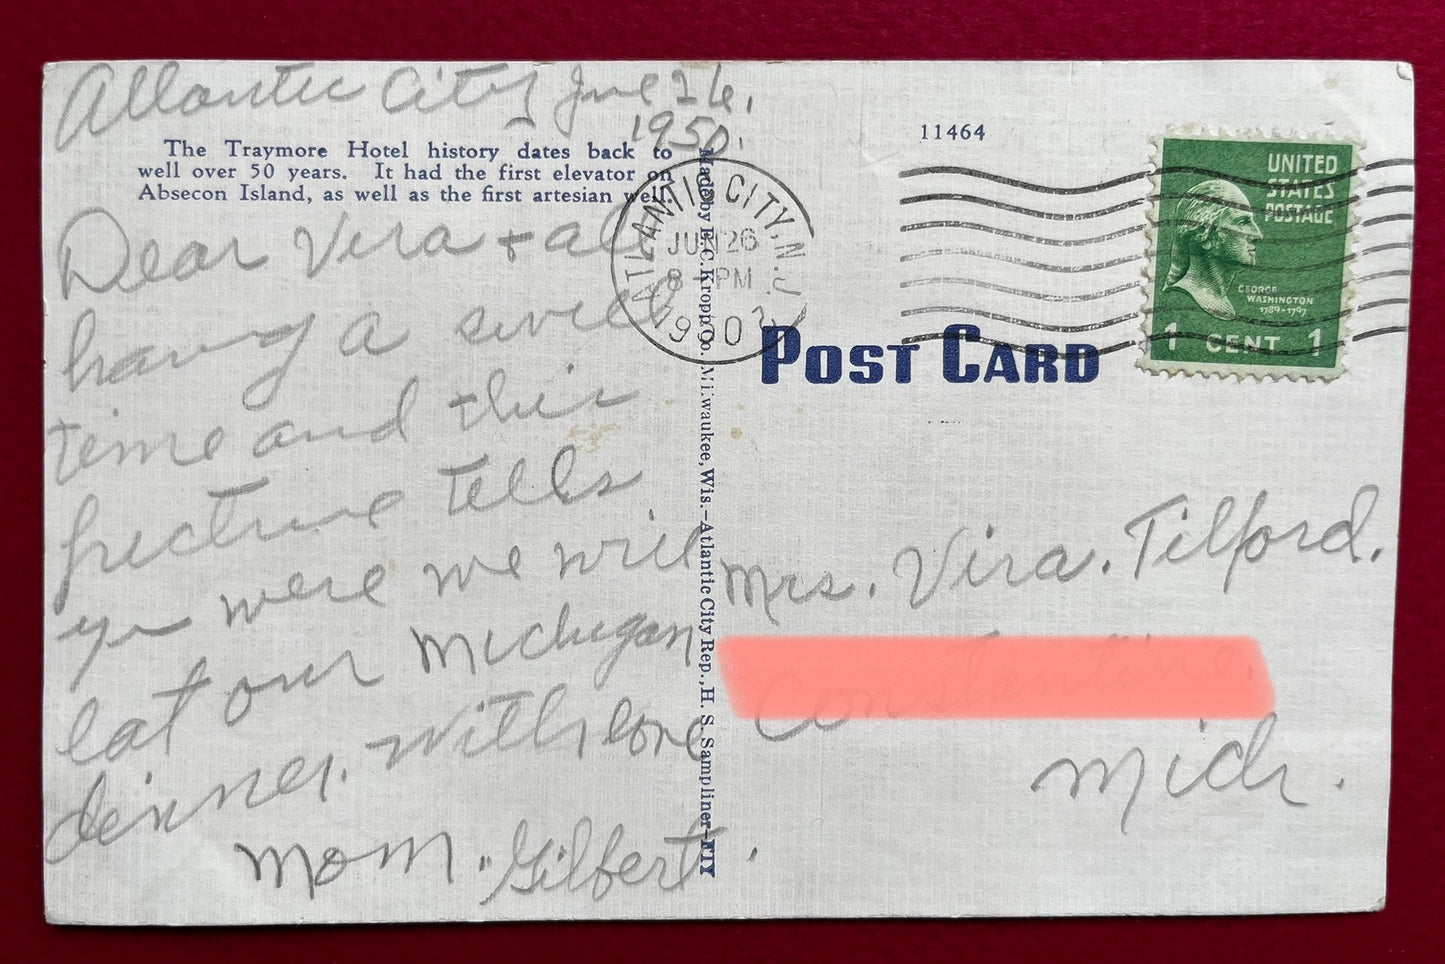 Atlantic City June 26,
1950.
The Traymore Hotel history dates back to
well over 50 years. It had the first elevator on
Absecon Island, as well as the first artesian well.
Dear Vira + all
having a swell
time and this
picture tells
yu were we will
eat our Michigan
dinner. With love
Mom. Gilbert.
Made by E. C. Kropp Co. Milwaukee, Wis.—Atlantic City Rep., H. S. Sampliner—NY
11464
ATLANTIC CITY, N.J.
JUN 26
8 PM
1950
2
UNITED
STATES
POSTAGE
GEORGE
WASHINGTON
1789-1797
1 CENT 1
POST CARD
Mrs. Vira. Tilford.
Constantine.
Mich.